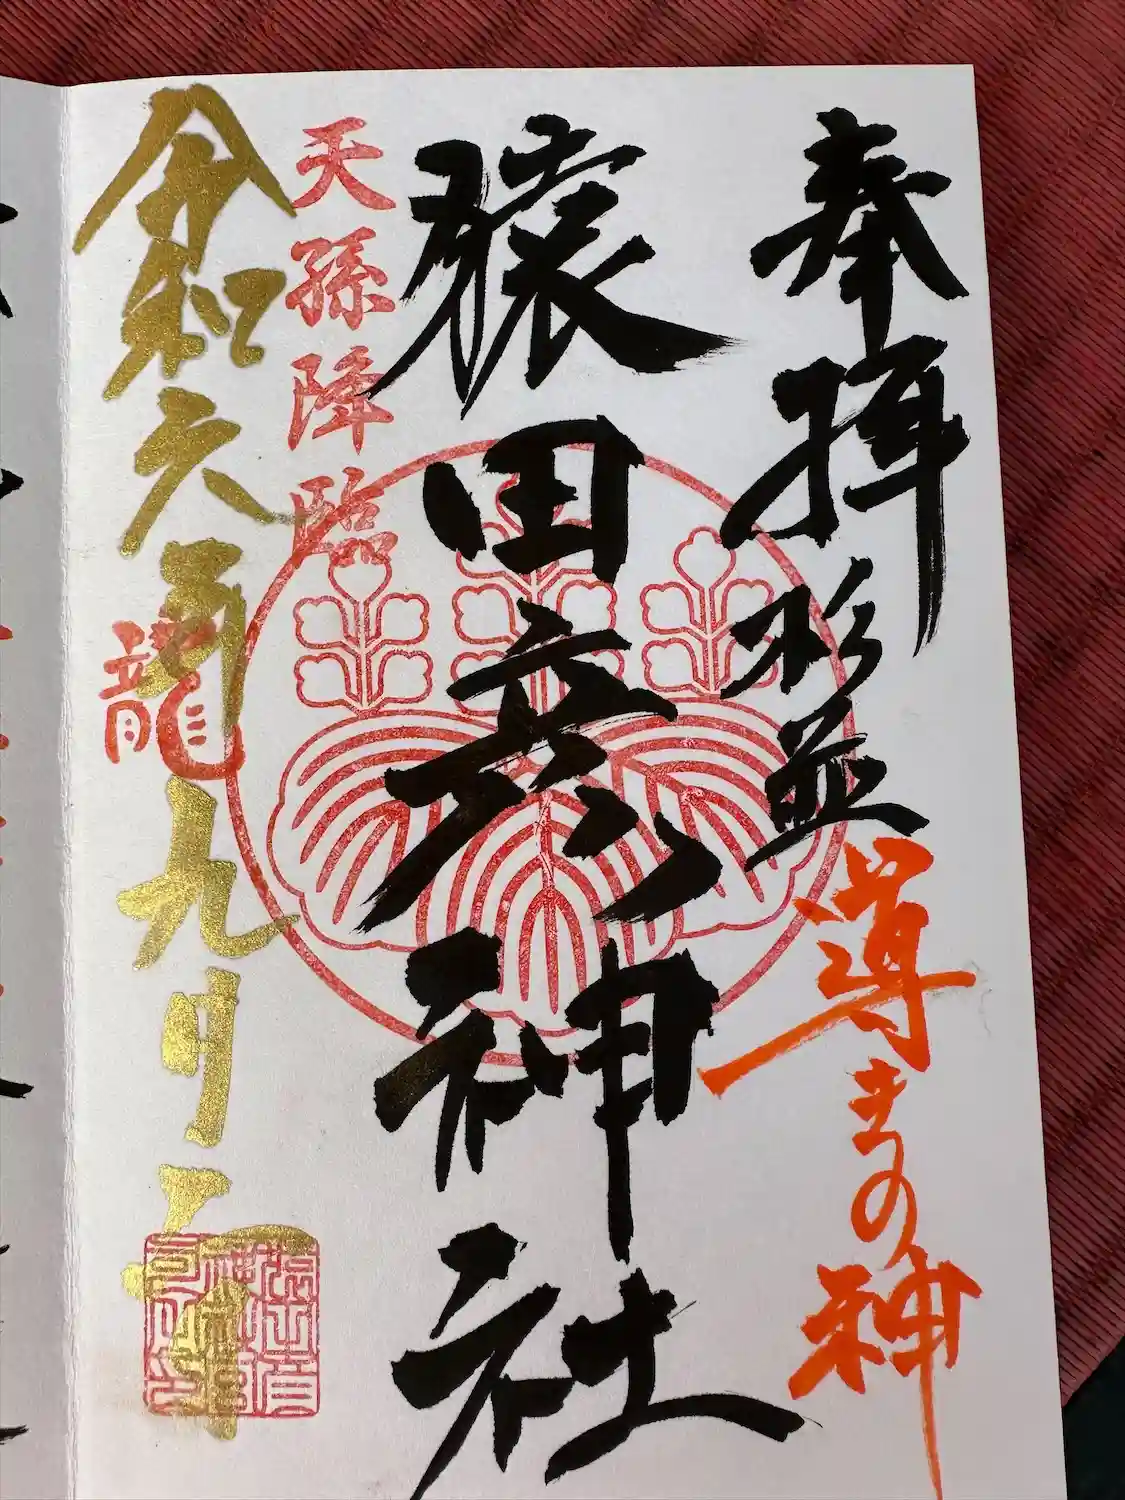 奉拝 杉並 導きの神
猿田彦神社
天孫降臨
令和六年九月
龍